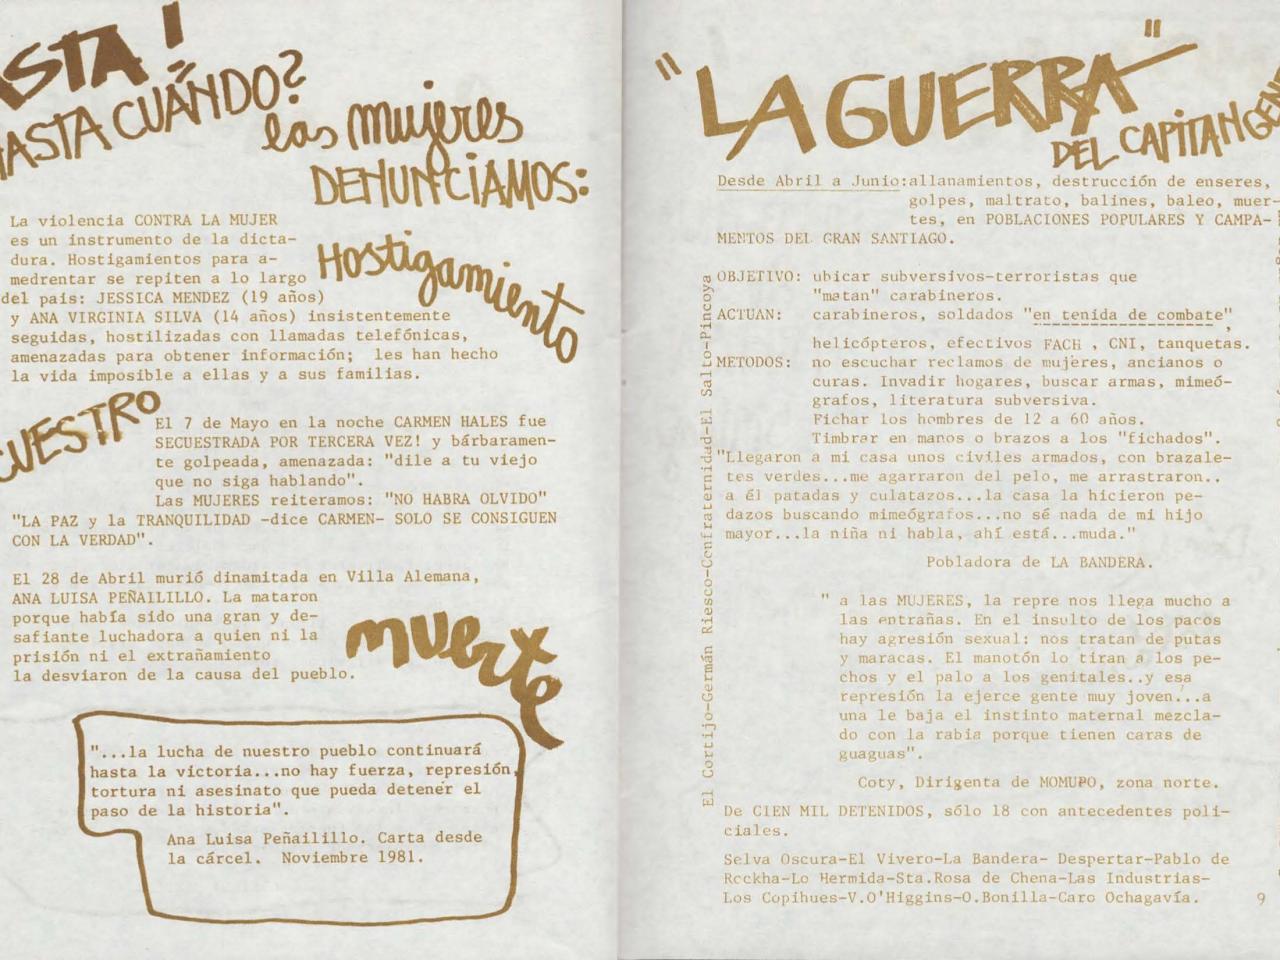 ¡STA!
HASTA CUÁNDO?
las mujeres
DENUNCIAMOS:
La violencia CONTRA LA MUJER
es un instrumento de la dicta-
dura. Hostigamientos para a-
medrentar se repiten a lo largo
del pais: JESSICA MENDEZ (19 años)
y ANA VIRGINIA SILVA (14 años) insistentemente
seguidas, hostilizadas con llamadas telefónicas,
amenazadas para obtener información; les han hecho
la vida imposible a ellas y a sus familias.
Hostigamiento
CUESTRO
El 7 de Mayo en la noche CARMEN HALES fue
SECUESTRADA POR TERCERA VEZ! y bárbaramen-
te golpeada, amenazada: "dile a tu viejo
que no siga hablando".
Las MUJERES reiteramos: "NO HABRA OLVIDO"
"LA PAZ y la TRANQUILIDAD -dice CARMEN- SOLO SE CONSIGUEN
CON LA VERDAD".
El 28 de Abril murió dinamitada en Villa Alemana,
ANA LUISA PEÑAILILLO. La mataron
porque había sido una gran y de-
safiante luchadora a quien ni la
prisión ni el extrañamiento
la desviaron de la causa del pueblo.
muerte
"...la lucha de nuestro pueblo continuará
hasta la victoria...no hay fuerza, represión,
tortura ni asesinato que pueda detener el
paso de la historia".
Ana Luisa Peñailillo. Carta desde
la cárcel. Noviembre 1981.
"LA GUERRA"
DEL CAPITAN GEN
Desde Abril a Junio:allanamientos, destrucción de enseres,
golpes, maltrato, balines, baleo, muer-
tes, en POBLACIONES POPULARES Y CAMPA-
MENTOS DEL GRAN SANTIAGO.
OBJETIVO: ubicar subversivos-terroristas que
"matan" carabineros.
ACTUAN: carabineros, soldados "en tenida de combate",
helicópteros, efectivos FACH , CNI, tanquetas.
METODOS: no escuchar reclamos de mujeres, ancianos o
curas. Invadir hogares, buscar armas, mimeó-
grafos, literatura subversiva.
Fichar los hombres de 12 a 60 años.
Timbrar en manos o brazos a los "fichados".
"Llegaron a mi casa unos civiles armados, con brazale-
tes verdes...me agarraron del pelo, me arrastraron..
a él patadas y culatazos...la casa la hicieron pe-
dazos buscando mimeógrafos...no sé nada de mi hijo
mayor...la niña ni habla, ahí está...muda."
Pobladora de LA BANDERA.
" a las MUJERES, la repre nos llega mucho a
las entrañas. En el insulto de los pacos
hay agresión sexual: nos tratan de putas
y maracas. El manotón lo tiran a los pe-
chos y el palo a los genitales..y esa
represión la ejerce gente muy joven...a
una le baja el instinto maternal mezcla-
do con la rabia porque tienen caras de
guaguas".
Coty, Dirigenta de MOMUPO, zona norte.
De CIEN MIL DETENIDOS, sólo 18 con antecedentes poli-
ciales.
Selva Oscura-El Vivero-La Bandera- Despertar-Pablo de
Rockha-Lo Hermida-Sta.Rosa de Chena-Las Industrias-
Los Copihues-V.O'Higgins-O.Bonilla-Caro Ochagavía.
9
El Cortijo-Germán Riesco-Confraternidad-El Salto-Pincoya